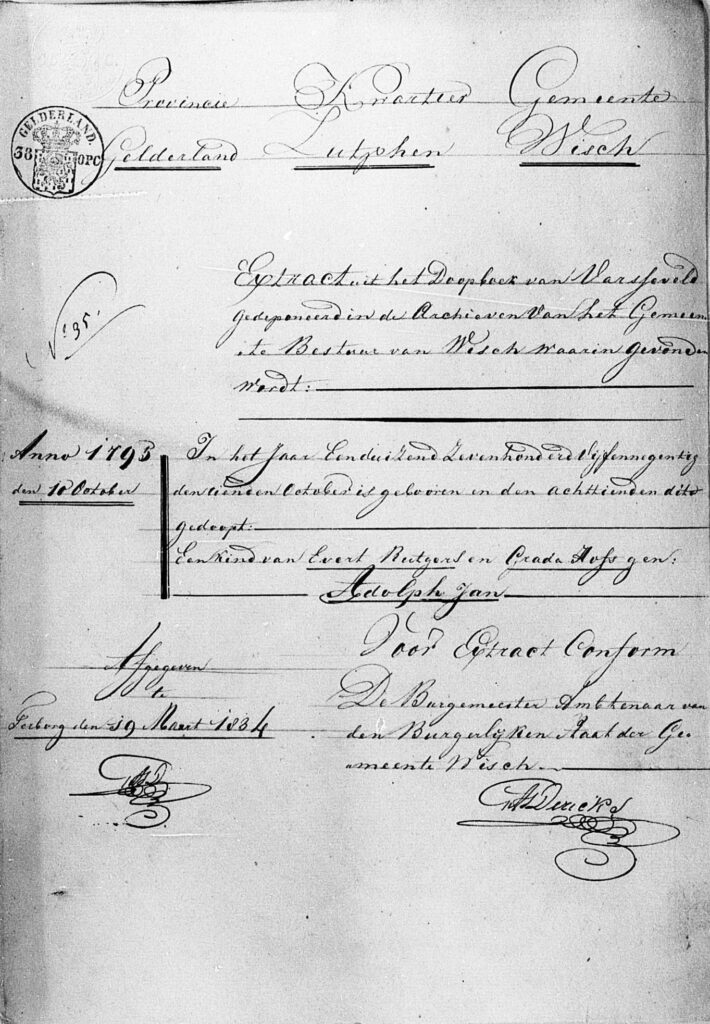 Provincie Kwartier Gemeente
GELDERLAND.
38 OPC
Gelderland Zutphen Wisch
Extract uit het Doopboek van Varsseveld
No 35.
gedeponeerd in de Archieven van het Gemeen
te Bestuur van Wisch waarin gevonden
wordt:
Anno 1795
den 10 October
In het Jaar Eenduizend Zevenhonderd Vijfennegentig
den tienden October is gebooren en den achttienden dito
gedoopt:
Een kind van Evert Rutgers en Grada Hofs gen:
Adolph Jan
Voor Extract Conform
Afgegeven
te
Terborg den 19 Maart 1834
De Burgemeester Ambtenaar van
den Burgerlijken Staat der Ge
meente Wisch.